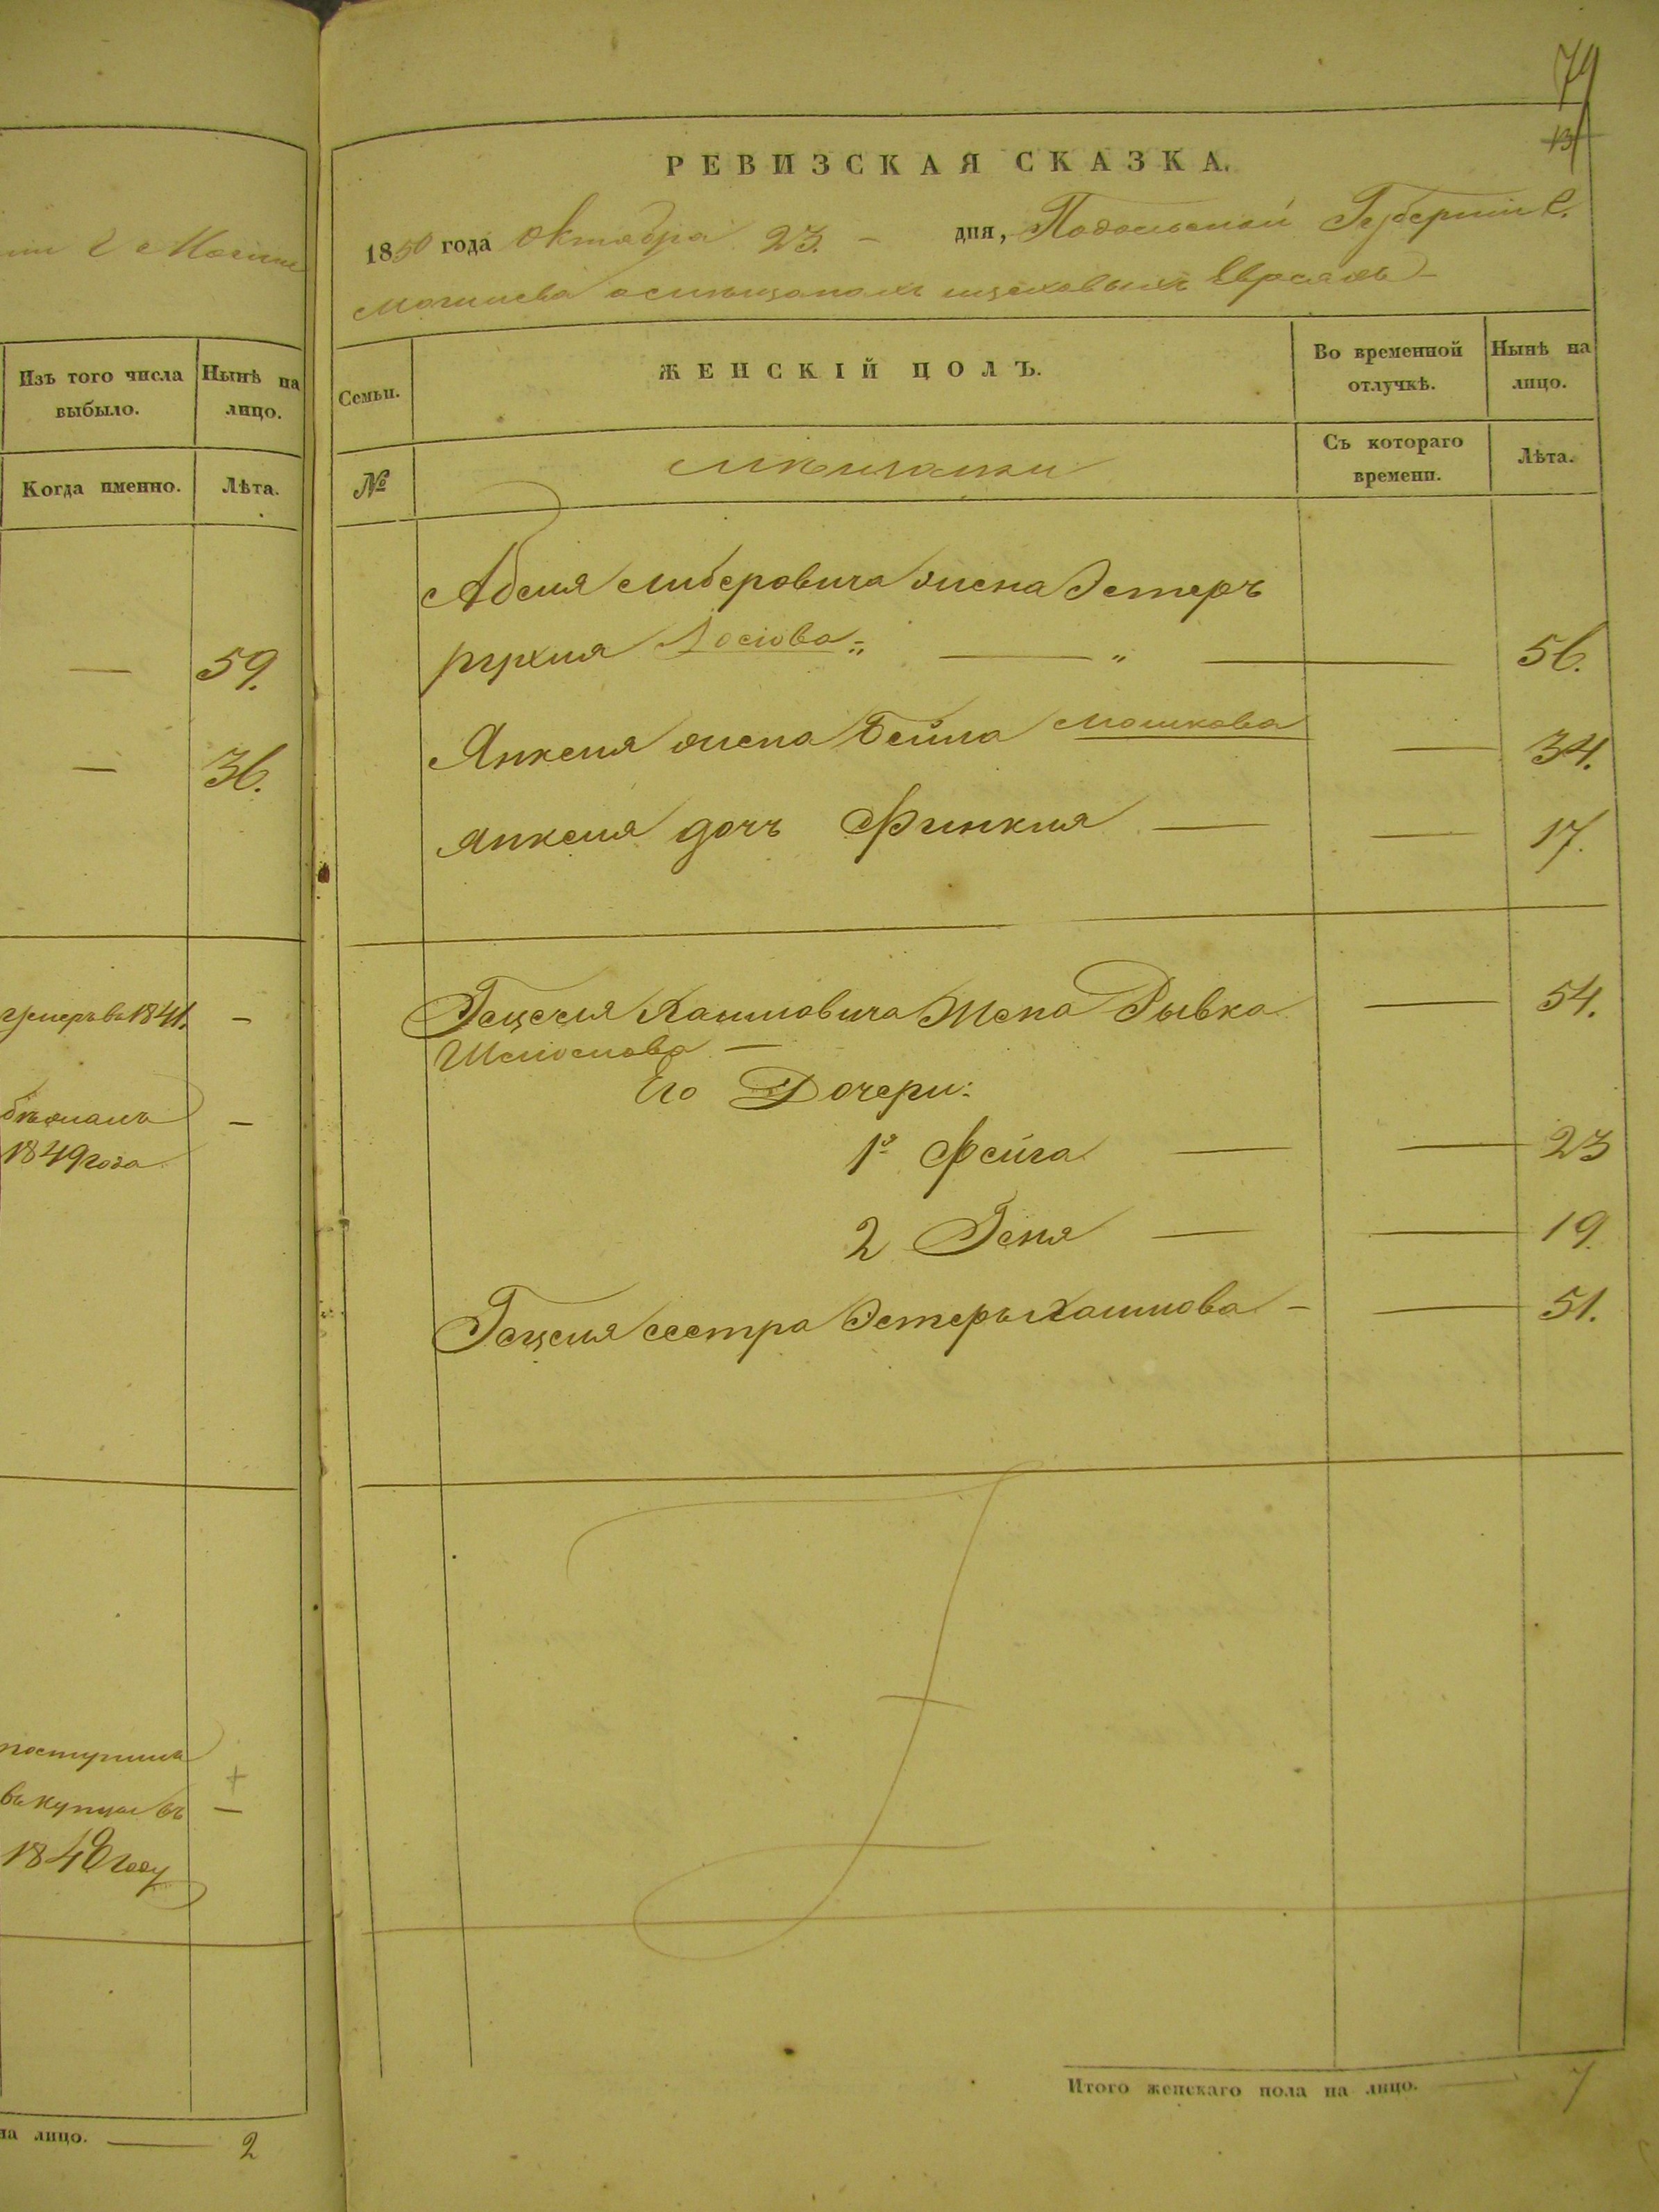 ніи
Изъ того числа выбыло.
Нынѣ на лицо.
Когда именно.
Лѣта.
—
59.
—
36.
умеръ въ 1841.
—
—
1849 года
поступилъ
въ купцы въ
—
1848 году
на лицо. — 2
79
РЕВИЗСКАЯ СКАЗКА.
1850 года Октября 23. – дня, Подольской Губерніи Г.
Могилева о мѣщанахъ цеховыхъ Евреяхъ –
Семьи.
ЖЕНСКІЙ ПОЛЪ.
Во временной отлучкѣ.
Нынѣ на лицо.
№
мѣщанки
Съ котораго времени.
Лѣта.
Абеля Либеровича жена Эстеръ
рухля Іосіова „ — „ — 56.
Янкеля жена Бейла Мошкова — 34.
Янкеля дочь Финкля — — 17.
Гецеля Хаимовича Жена Рывка — 54.
Шлиомова —
Его Дочери:
1я Фейга — — 23
2 Геня — — 19.
Гецеля сестра Эстеръ Хаимова – — 51.
Итого женскаго пола на лицо. — 7